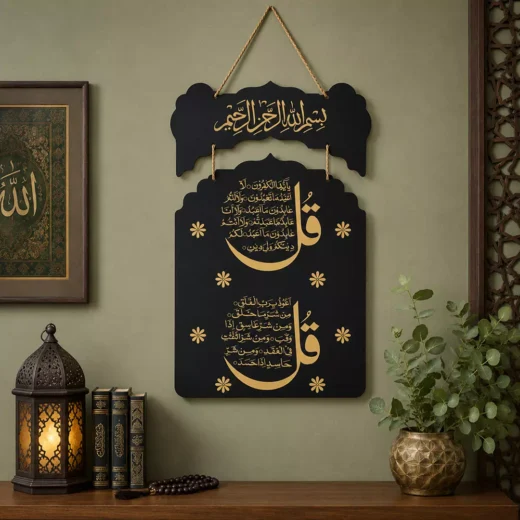 الله
بسم الله الرحمن الرحيم
قل
يأيها الكفرون ۝ لا
اعبد ما تعبدون ۝ ولا انتم
عابدون ما اعبد ۝ ولا انا
عابد ما عبدتم ۝ ولا انتم
عابدون ما اعبد ۝ لكم
دينكم ولي دين ۝
قل
اعوذ برب الفلق ۝
من شر ما خلق ۝
ومن شر غاسق اذا
وقب ۝ ومن شر النفثت
في العقد ۝ ومن شر
حاسد اذا حسد ۝